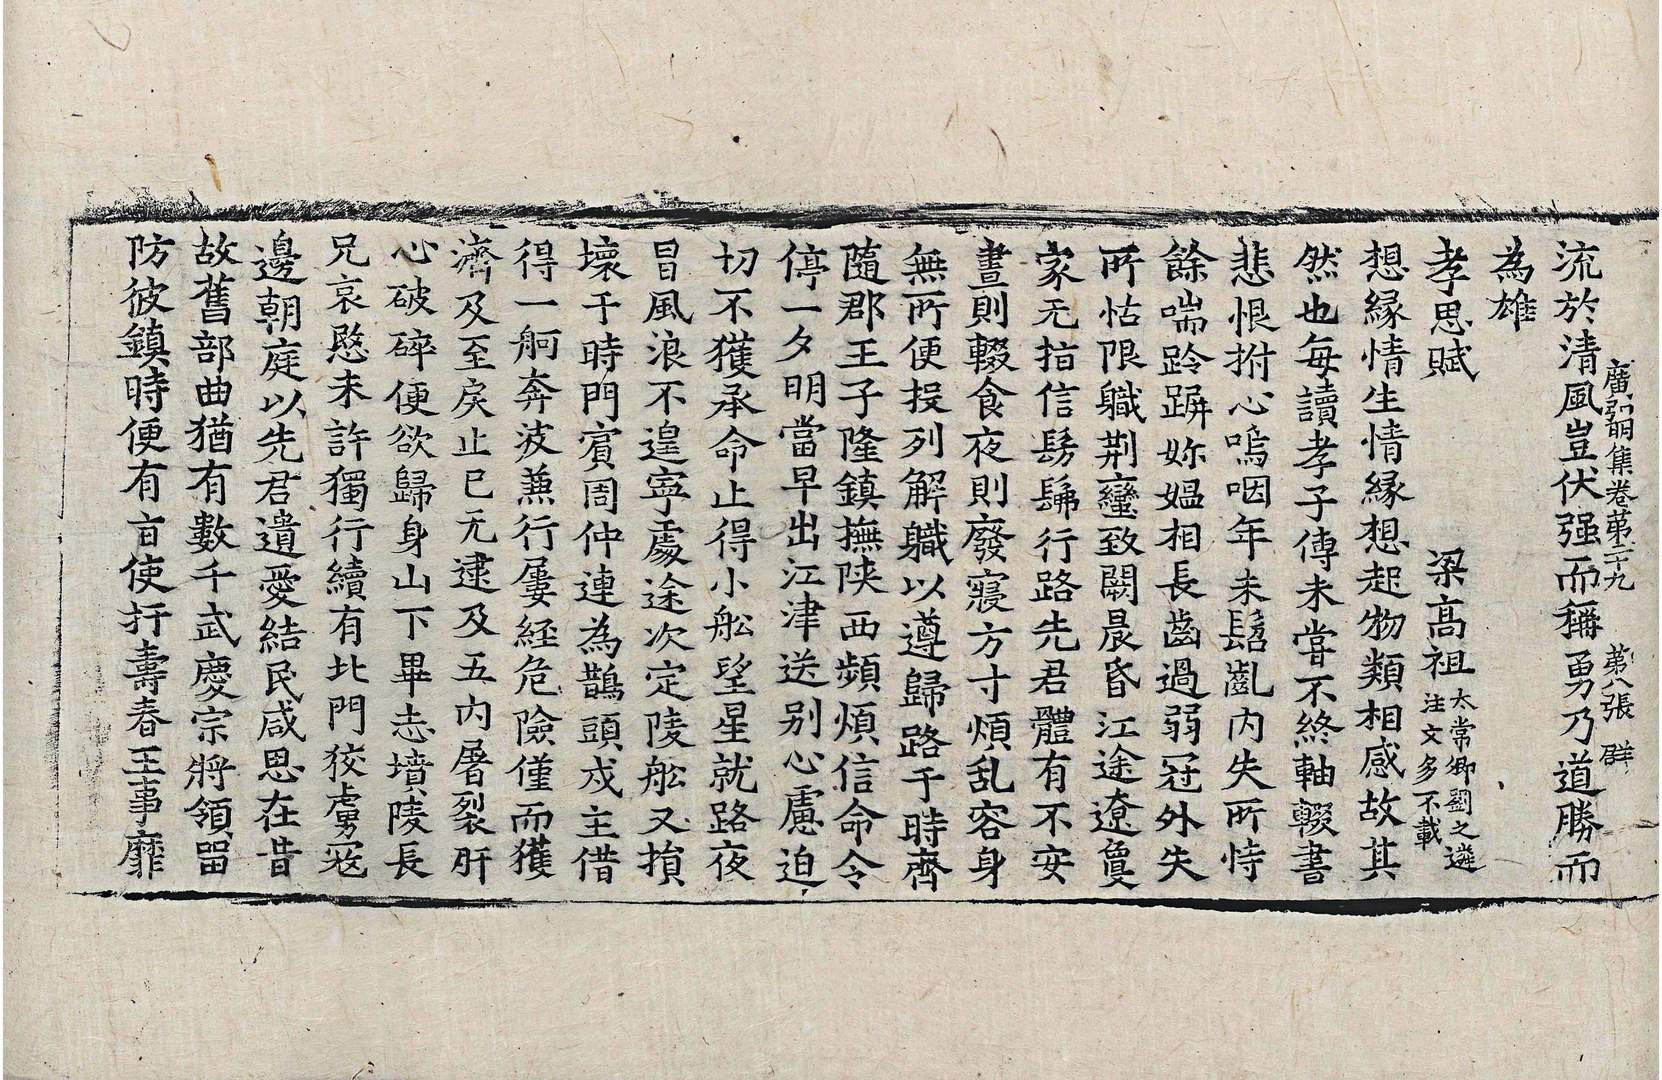 廣弘明集卷第二十九　第八張　群
流於清風豈伏强而稱勇乃道勝而
為雄
孝思賦　梁高祖　太常卿劉之遴注文多不載
想緣情生情緣想起物類相感故其
然也每讀孝子傳未嘗不終軸輟書
悲恨拊心嗚咽年未髫齓内失所恃
餘喘竛竮妳媪相長齒過弱冠外失
所怙限職荆蠻致闕晨昏江途遼敻
家无指信髣髴行路先君體有不安
晝則輟食夜則廢寢方寸煩乱容身
無所便投列解職以遵歸路于時齊
隨郡王子隆鎮撫陝西頻煩信命令
停一夕明當早出江津送别心慮迫
切不獲承命止得小舩望星就路夜
冒風浪不遑寧處途次定陵舩又損
壞于時門賓周仲連為鵲頭戍主借
得一舸奔波兼行屢經危險僅而獲
濟及至戾止已无逮及五内屠裂肝
心破碎便欲歸身山下畢志墳陵長
兄哀愍未許獨行續有北門狡虜寇
邊朝庭以先君遺愛結民咸思在昔
故舊部曲猶有數千武慶宗將領留
防彼鎮時便有旨使扞壽春王事靡